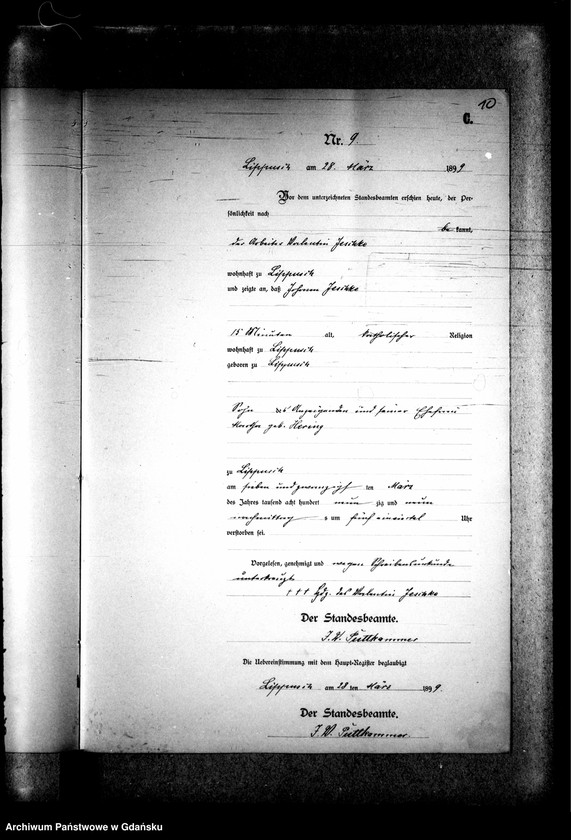 10
C.
Nr. 9.
Lippusch am 28. März 1899
Vor dem unterzeichneten Standesbeamten erschien heute, der Per-
sönlichkeit nach
be kannt,
der Arbeiter Valentin
wohnhaft zu Lippusch
und zeigte an, daß Johann
15 Minuten alt, katholischer Religion
wohnhaft zu Lippusch
geboren zu Lippusch
Sohn des Anzeigenden und seiner Ehefrau
Martha geb. Hering
zu Lippusch
am sieben und zwanzigsten März
des Jahres tausend acht hundert neun zig und neun
nachmittag s um fünf einviertel Uhr
verstorben sei.
Vorgelesen, genehmigt und wegen Schreibensunkunde
unterkreuzt
††† Hdz. des Valentin
Der Standesbeamte.
J. V. Puttkammer
Die Uebereinstimmung mit dem Haupt-Register beglaubigt
Lippusch am 28 ten März 1899.
Der Standesbeamte.
J. V. Puttkammer.
Archiwum Państwowe w Gdańsku